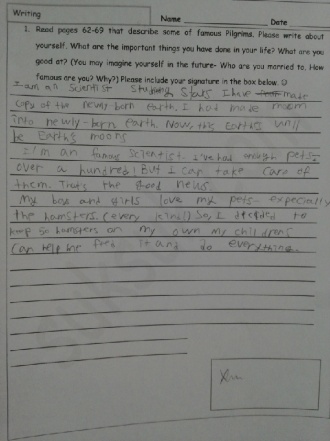 Writing
Name Date
1. Read pages 62-69 that describe some of famous Pilgrims. Please write about
yourself. What are the important things you have done in your life? What are you
good at? (You may imagine yourself in the future- Who are you married to. How
famous are you? Why?) Please include your signature in the box below. ☺
I am an Scientist Studying Stars I have made
copy of the newly born Earth. I had made them
into newly-born earth. Now, this Earths will
be Earth's moons
I'm an famous Scientist. I've had enough pets-
over a hundreds! But I can take care of
them. That's the good news
My boys and girls love my pets- expecially
the hamsters. (every kind!) So, I decided to
keep 50 hamsters on my own my childrens
can help me feed it and do everything.